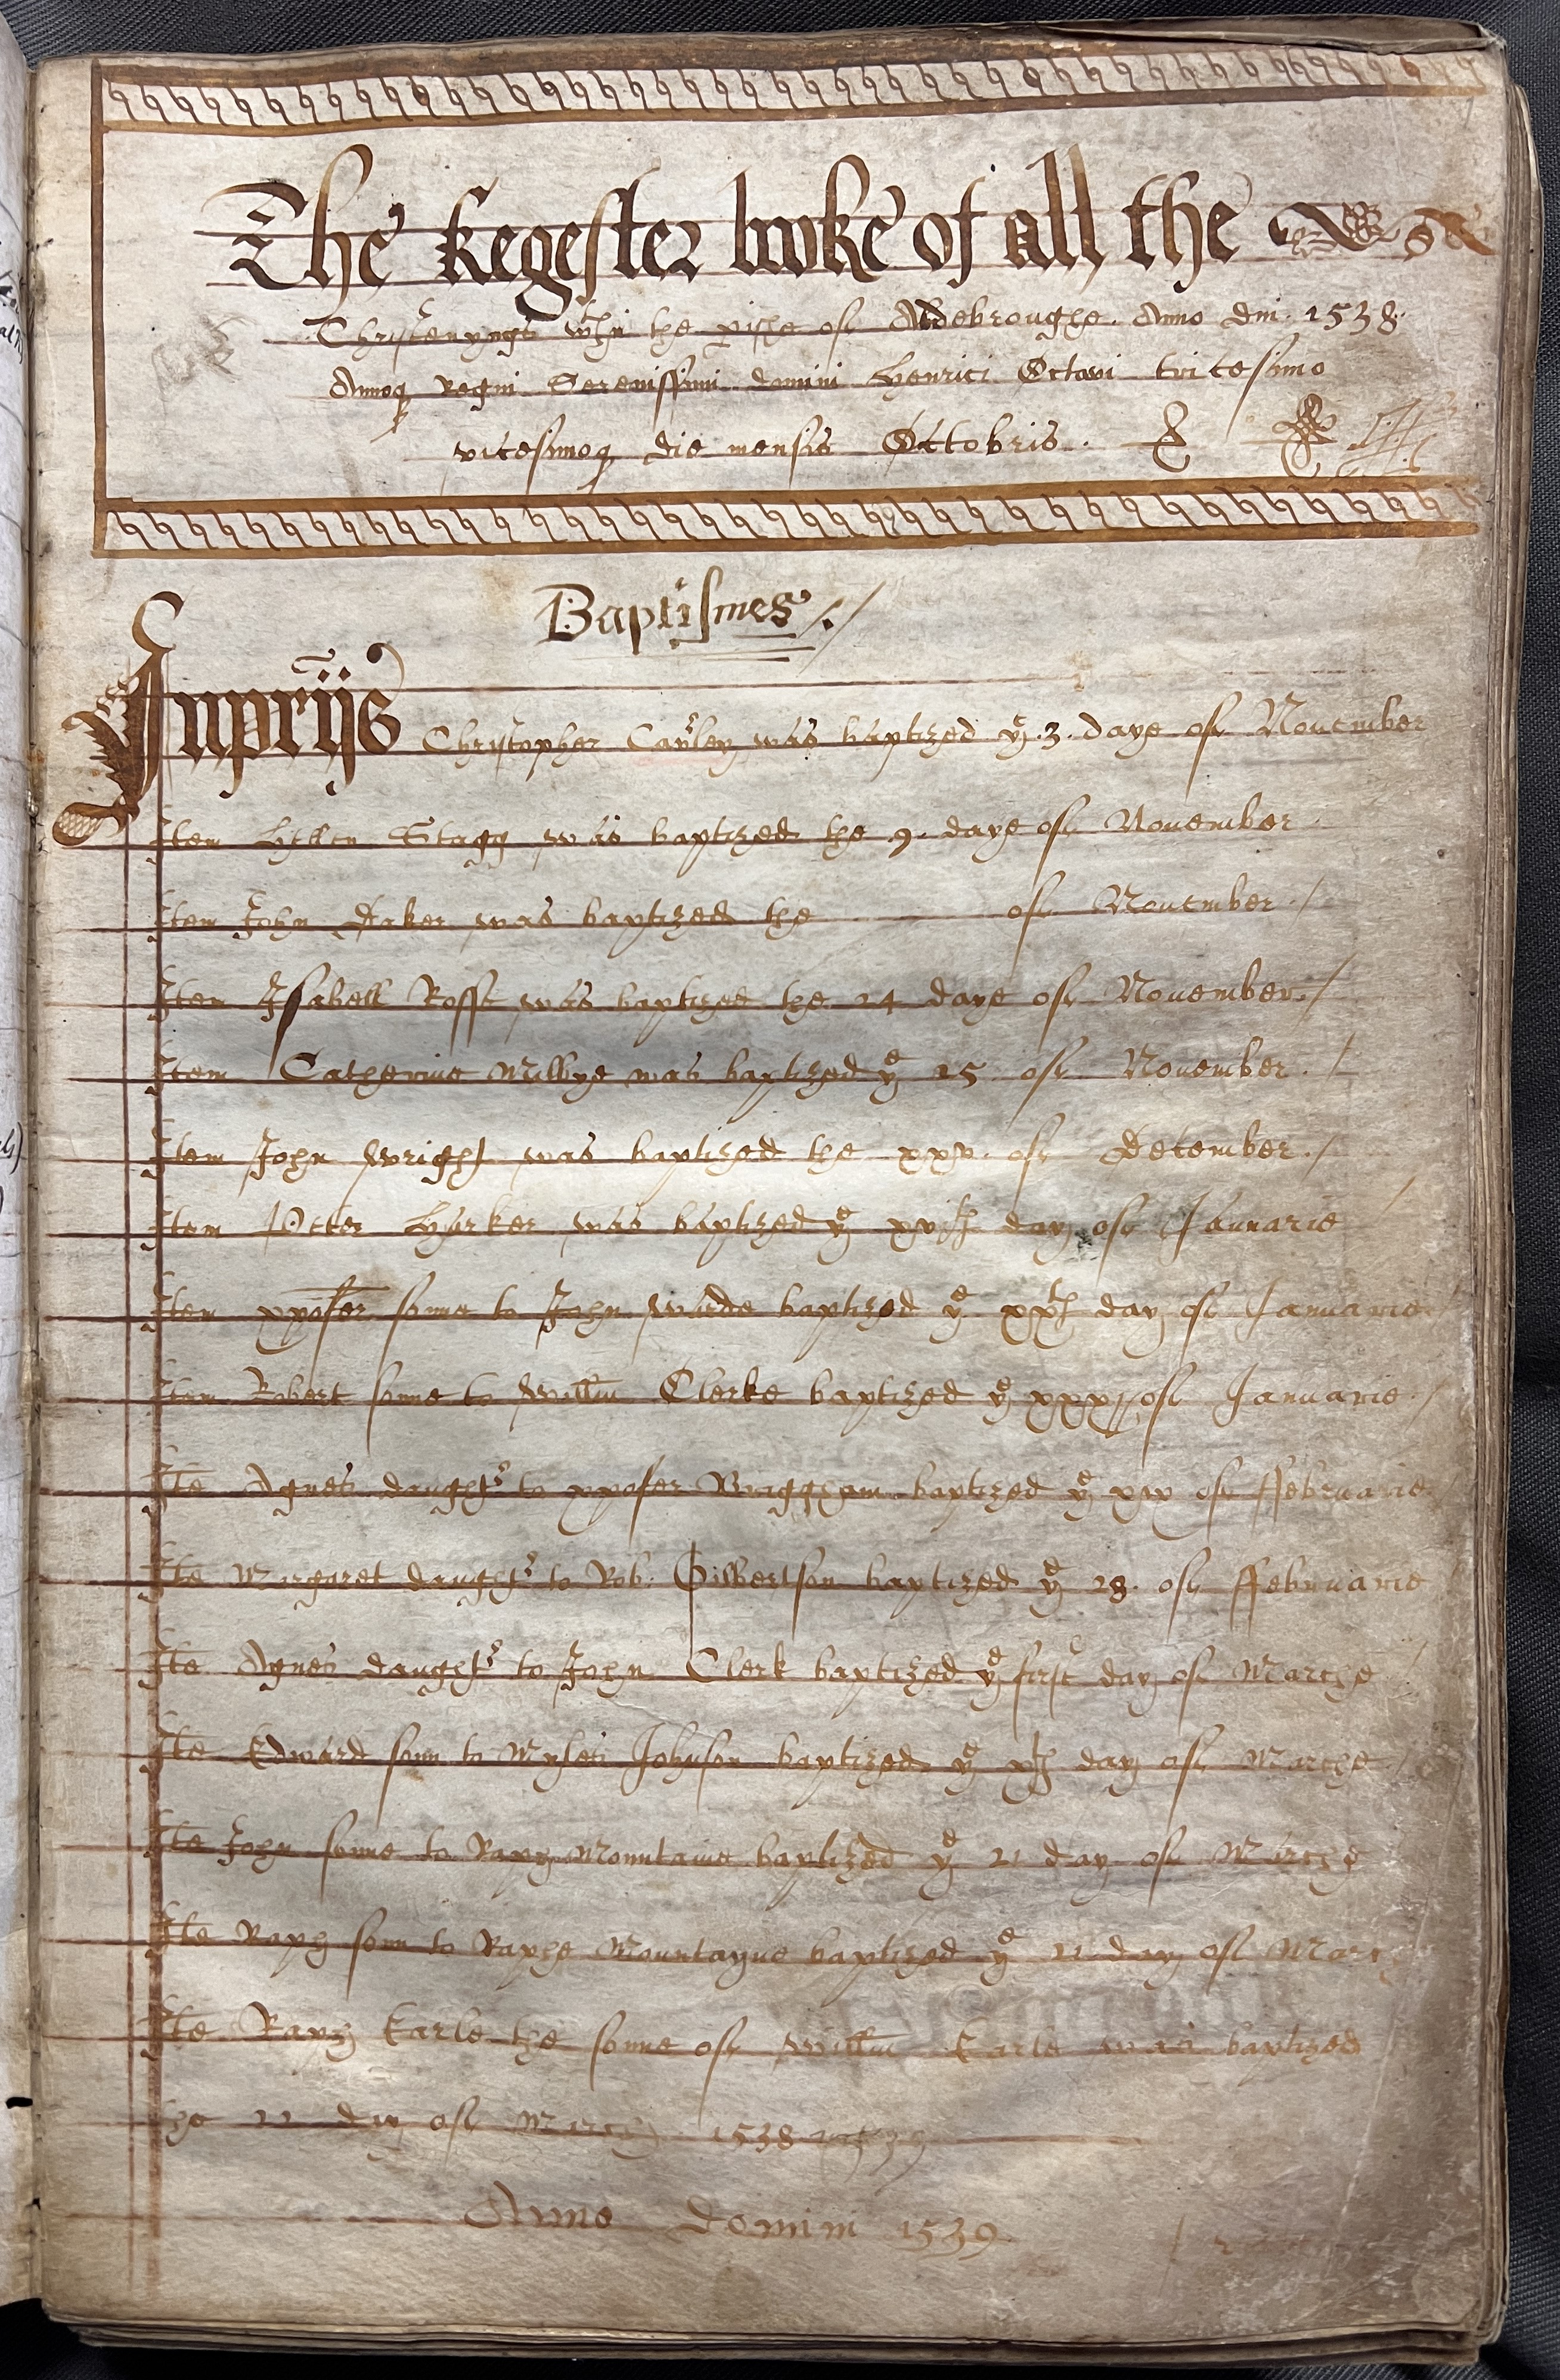 The Regester booke of all the
Christenyngs wthin the pishe of Aldebroughe. Anno dni 1538.
Annoq Regni Serenissimi domini Henrici Octavi tricesimo
vicesimoq die mensis Octobris.
Baptismes
Inpriis Christopher Cayley was baptized ye 3. daye of Nouember
Item Stagg was baptized the 9. daye of Nouember
Item John Baker was baptized the of Nouember
Item Isabell Rosse was baptized the 24 daye of Nouember
Item Catherine Milbye was baptized ye 25 of Nouember
Item John Wright was baptized the xxv of December
Item Petter was baptized ye day of Januarie
Item xpofer sonne to John Wade baptized ye day of Januarie
Item Robert sonne to Willm Clerke baptized ye of Januarie
Ite Agnes daughtr to xpofer Briggham baptized ye of ffebruarie
Ite Margaret daughtr to Rob. Gilbertson baptized ye 28. of ffebruarie
Ite Agnes daughtr to John Clerk baptized ye first day of Marche
Ite Edward sonn to Myles Johnson baptized ye day of Marche
Ite John sonne to Raph Mountaine baptized ye 21 day of Marche
Ite Raph sonn to Raphe Mountayne baptized ye day of Marc
Ite Raph Earle the sonne of Willm Earle was baptized
the day of March 1538
Anno Domini 1539